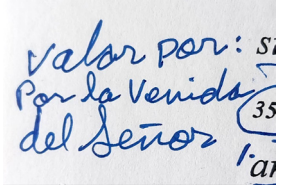 valor por: si
Por la Venida 35
del Señor 1. ar